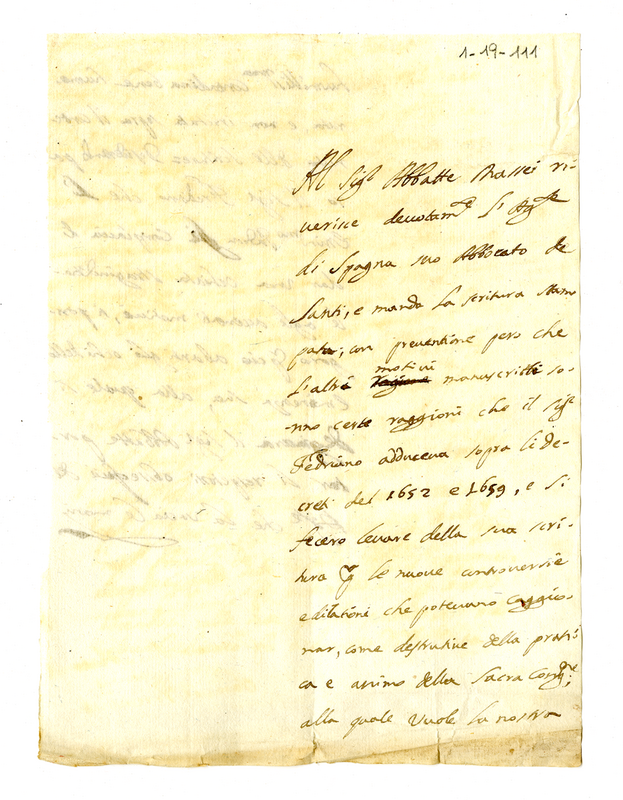 1-19-111
Al Sig.r Abbatte Massei ri-
verisce devotam.te l'Ag.te
di Spagna suo Abbocato de
Santi, e manda la scritura stam
pata, con preventione pero che
l'altri motivi ragione manuscritti so-
nno certe raggioni che il sig.r
Fedriano adduceva sopra li de-
creti del 1652 e 1659, e si
fecero levare della sua scri-
tura p le nuove controversie
e dilationi che potevano caggio-
nar, come destrutive della prati-
ca e animo della Sacra Cong.ne;
alla quale vuole la nostra